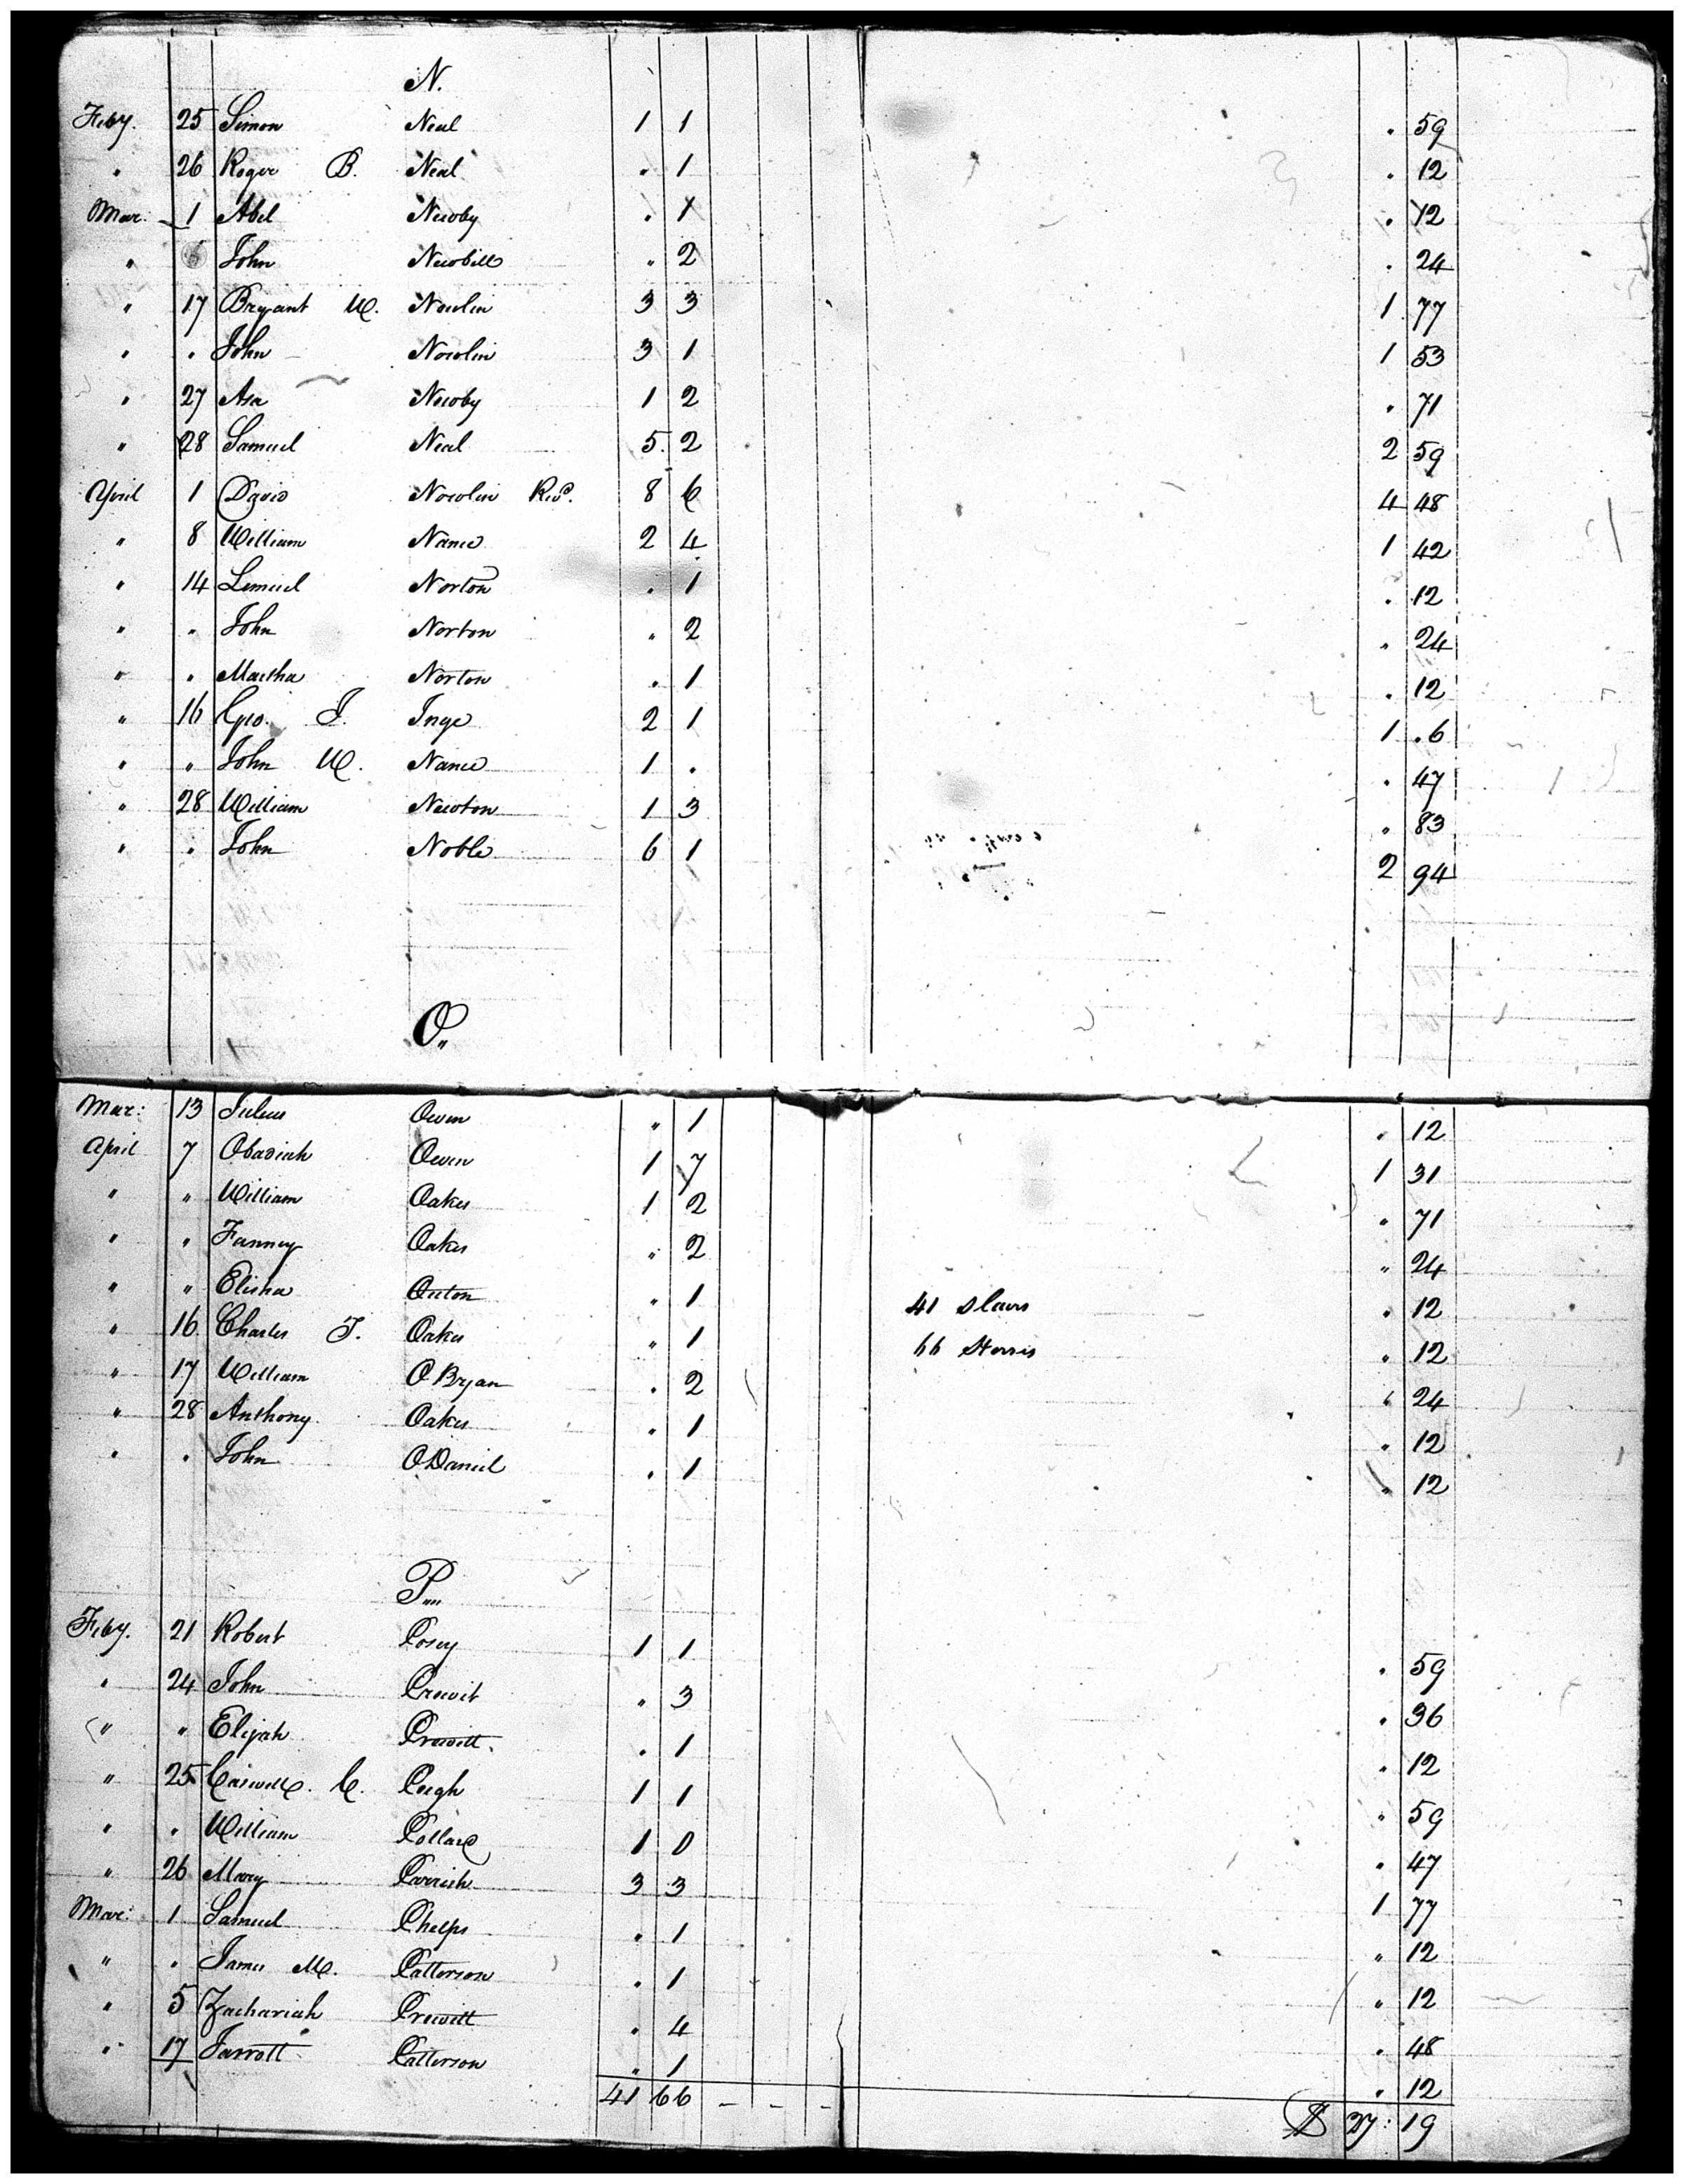 N.
Feby. 25 Simon Neal 1 1 . 59
" 26 Roger B. Neal . 1 . 12
Mar: 1 Abel Newby . 1 . 12
" 6 John Newbill " 2 . 24
" 17 Bryant W. Nowlin 3 3 1 77
" " John Nowlin 3 1 1 53
" 27 Asa Newby 1 2 . 71
" 28 Samuel Neal 5 2 2 59
April 1 David Nowlin Revd. 8 6 4 48
" 8 William Nance 2 4 1 42
" 14 Lemuel Norton . 1 . 12
" " John Norton " 2 " 24
" " Martha Norton . 1 . 12
" 16 Geo. J. Inge 2 1 1 . 6
" " John W. Nance 1 . . 47
" 28 William Newton 1 3 " 83
" " John Noble 6 1 2 94
O..
Mar: 13 Owen " 1 . 12
April 7 Obadiah Owen 1 7 1 31
" " William Oakes 1 2 " 71
" " Fanney Oakes " 2 " 24
" " Elisha " 1 41 Slaves . 12
" 16 Charles T. Oakes " 1 66 Horses " 12
" 17 William O Bryan . 2 " 24
" 28 Anthony Oakes " 1 " 12
" " John ODaniel . 1 " 12
P...
Feby. 21 Robert Posey 1 1 . 59
" 24 John Prewit " 3 . 36
" " Elijah Prewitt . 1 . 12
" 25 Caswell C. Pugh 1 1 " 59
" " William Pollard 1 0 . 47
" 26 Mary Parrish 3 3 1 77
Mar: 1 Samuel Phelps . 1 " 12
" " James M. Patterson . 1 " 12
" 5 Zachariah Prewitt . 4 . 48
" 17 Jarrott Patterson " 1 . 12
41 66 - - - $ 27: 19